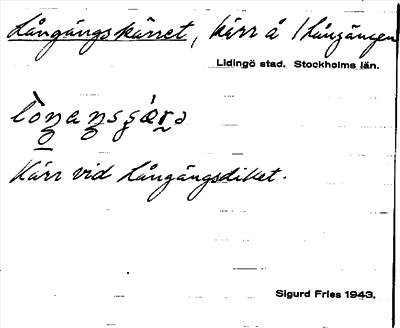 Långängskärret, kärr å Långängen
Lidingö stad. Stockholms län.
Kärr vid Långängsdiket.
Sigurd Fries 1943.